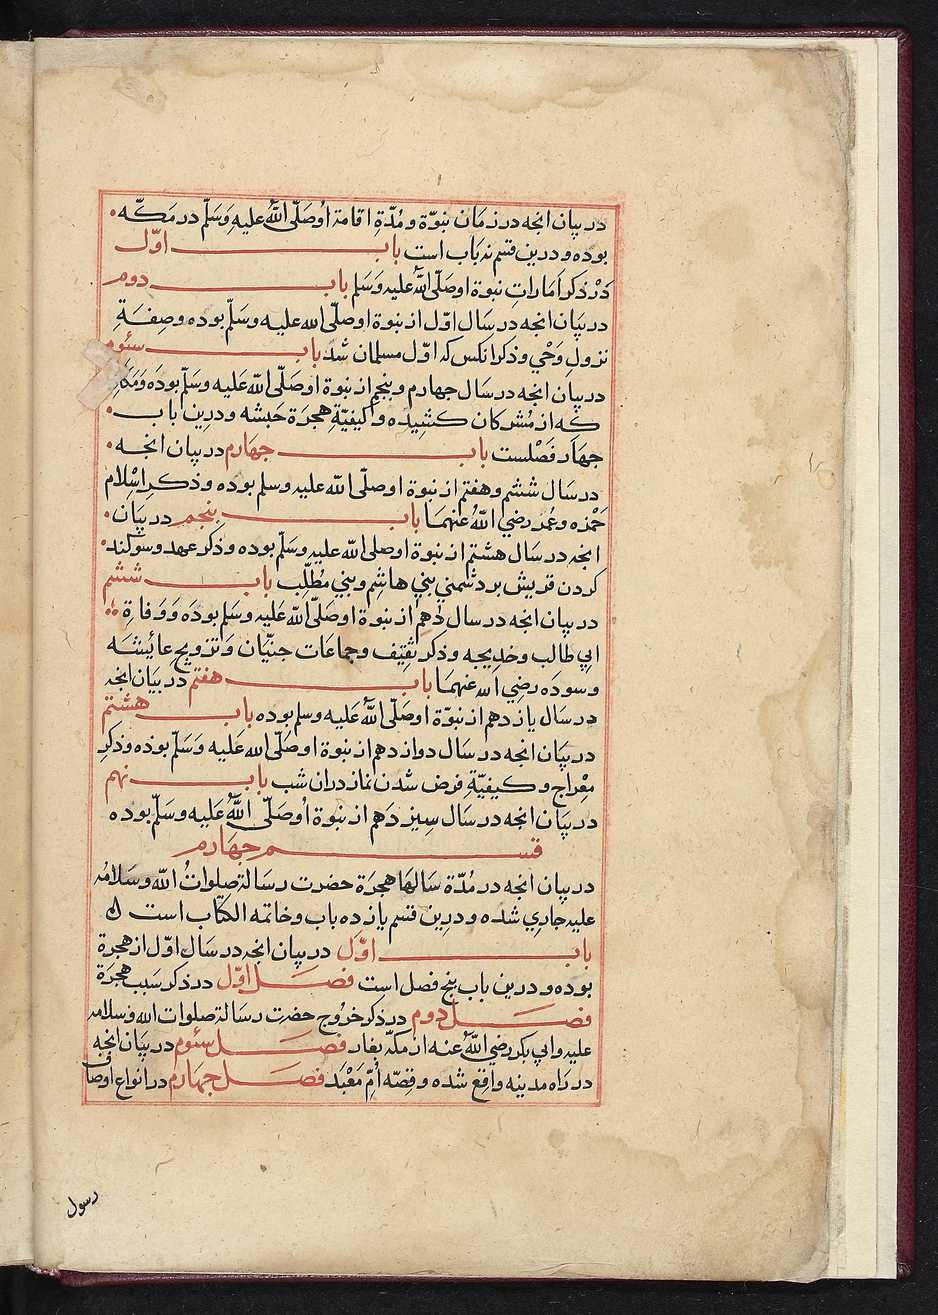 در بیان انجه در زمان نبوّة و مُدّةِ اقامة اوُصَلّی اللّٰهُ علیهِ وَسَلّم در مَکّه
بوده و درین قسم نه بَاب است باب اوّل
دَرْ ذکر اَمَاراتِ نبوة او صَلّی اللّٰهُ علیه وَسَلم باب دوم
در بیَان انجه در سَال اوّل از نبوة او صلّی الله علیه وسَلّم بوده و صِفَةِ
نزولِ وَحْي و ذکر انکس که اوّل مسلمان شد باب سئوم
در بیان انجه در سَال جهارم و بنجم از نبوة او صَلّی الله عَلیه وسَلّم بودَه
که از مُشرکان کشِیده و کیفیّةِ هجرَة حَبشه و درین اباب
جهَار فَصْلست باب جهَارم در بیان انجه
در سَال ششم و هفتم از نبوة او صلّی الله علیه وسلم بوده و ذکرِ اِسْلام
حَمْزه و عُمَر رضي اللّٰهُ عنهمَا باب بنجم در بیَان
انجه در سَال هشتم از نبوة او صلی الله علیه وسَلّم بوده و ذکر عهد و سَوکند
کردن قریش بر دشمني بني هاشِم و بني مُطّلِب باب ششم
در بیَان انجه در سال دَهم از نبوة او صَلّی الله علیه وسَلم بودَه وَ وَفاةِ
ابي طالب و خدیجه و ذکر ثقِیف و جماعَات جنّیَان و تزویج عَائِشَه
و سودَه رضِي الله عنهمَا باب هفتم در بیَان انجه
در سَال یازدهم از نبوّة او صَلّی اللّٰهُ عَلیه وسلم بوده باب هشتم
در بیَان انجه در سَال دوازدهم از نبوة او صَلّی الله عَلیه وَسَلّم بوده و ذکرِ
مِعْراج و کیفیّةِ فرض شدن نماز دران شب باب نهم
در بیَان انجه در سَال سِیزدَهم از نبوة اوُ صَلّی اللّٰهُ عَلیه وسَلّم بوده
قسم جهَارم
در بیان انجه در مُدّة سَالهَا هجرَة حضرت رسَالة صلواتُ اللّٰه وسَلامُه
علیه جاري شده و درین قسم یازده باب و خاتمه الکتاب است
باب اوّل در بیان انجه در سَال اوّل از هجرة
بوده و درین باب بنج فصل است فصل اوّل در ذکر سَبب هجرَة
فصل دوم در ذکر خرُوج حضرت رسَالة صلوات الله وسلامه
علیه و ابي بکر رضي اللّٰهُ عنه از مکّه بغار فصل سئوم در بیَان انجه
در رَاه مدینه واقِع شده و قِصّه أُمّ مَعْبَد فصل جهارم در انواع اوصاف
رسول